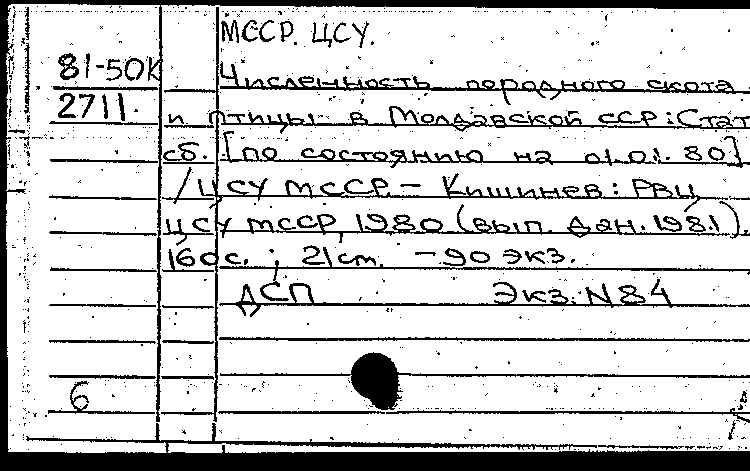 МССР. ЦСУ.
81-50К Численность породного скота
2711. и птицы в Молдавской ССР: Стат
сб. [по состоянию на 01.01.80]
/ЦСУ МССР. - Кишинев: РВЦ
ЦСУ МССР, 1980 (вып. дан. 1981).
160с. ; 21 cm. - 90 экз.
ДСП Экз. N 84
6